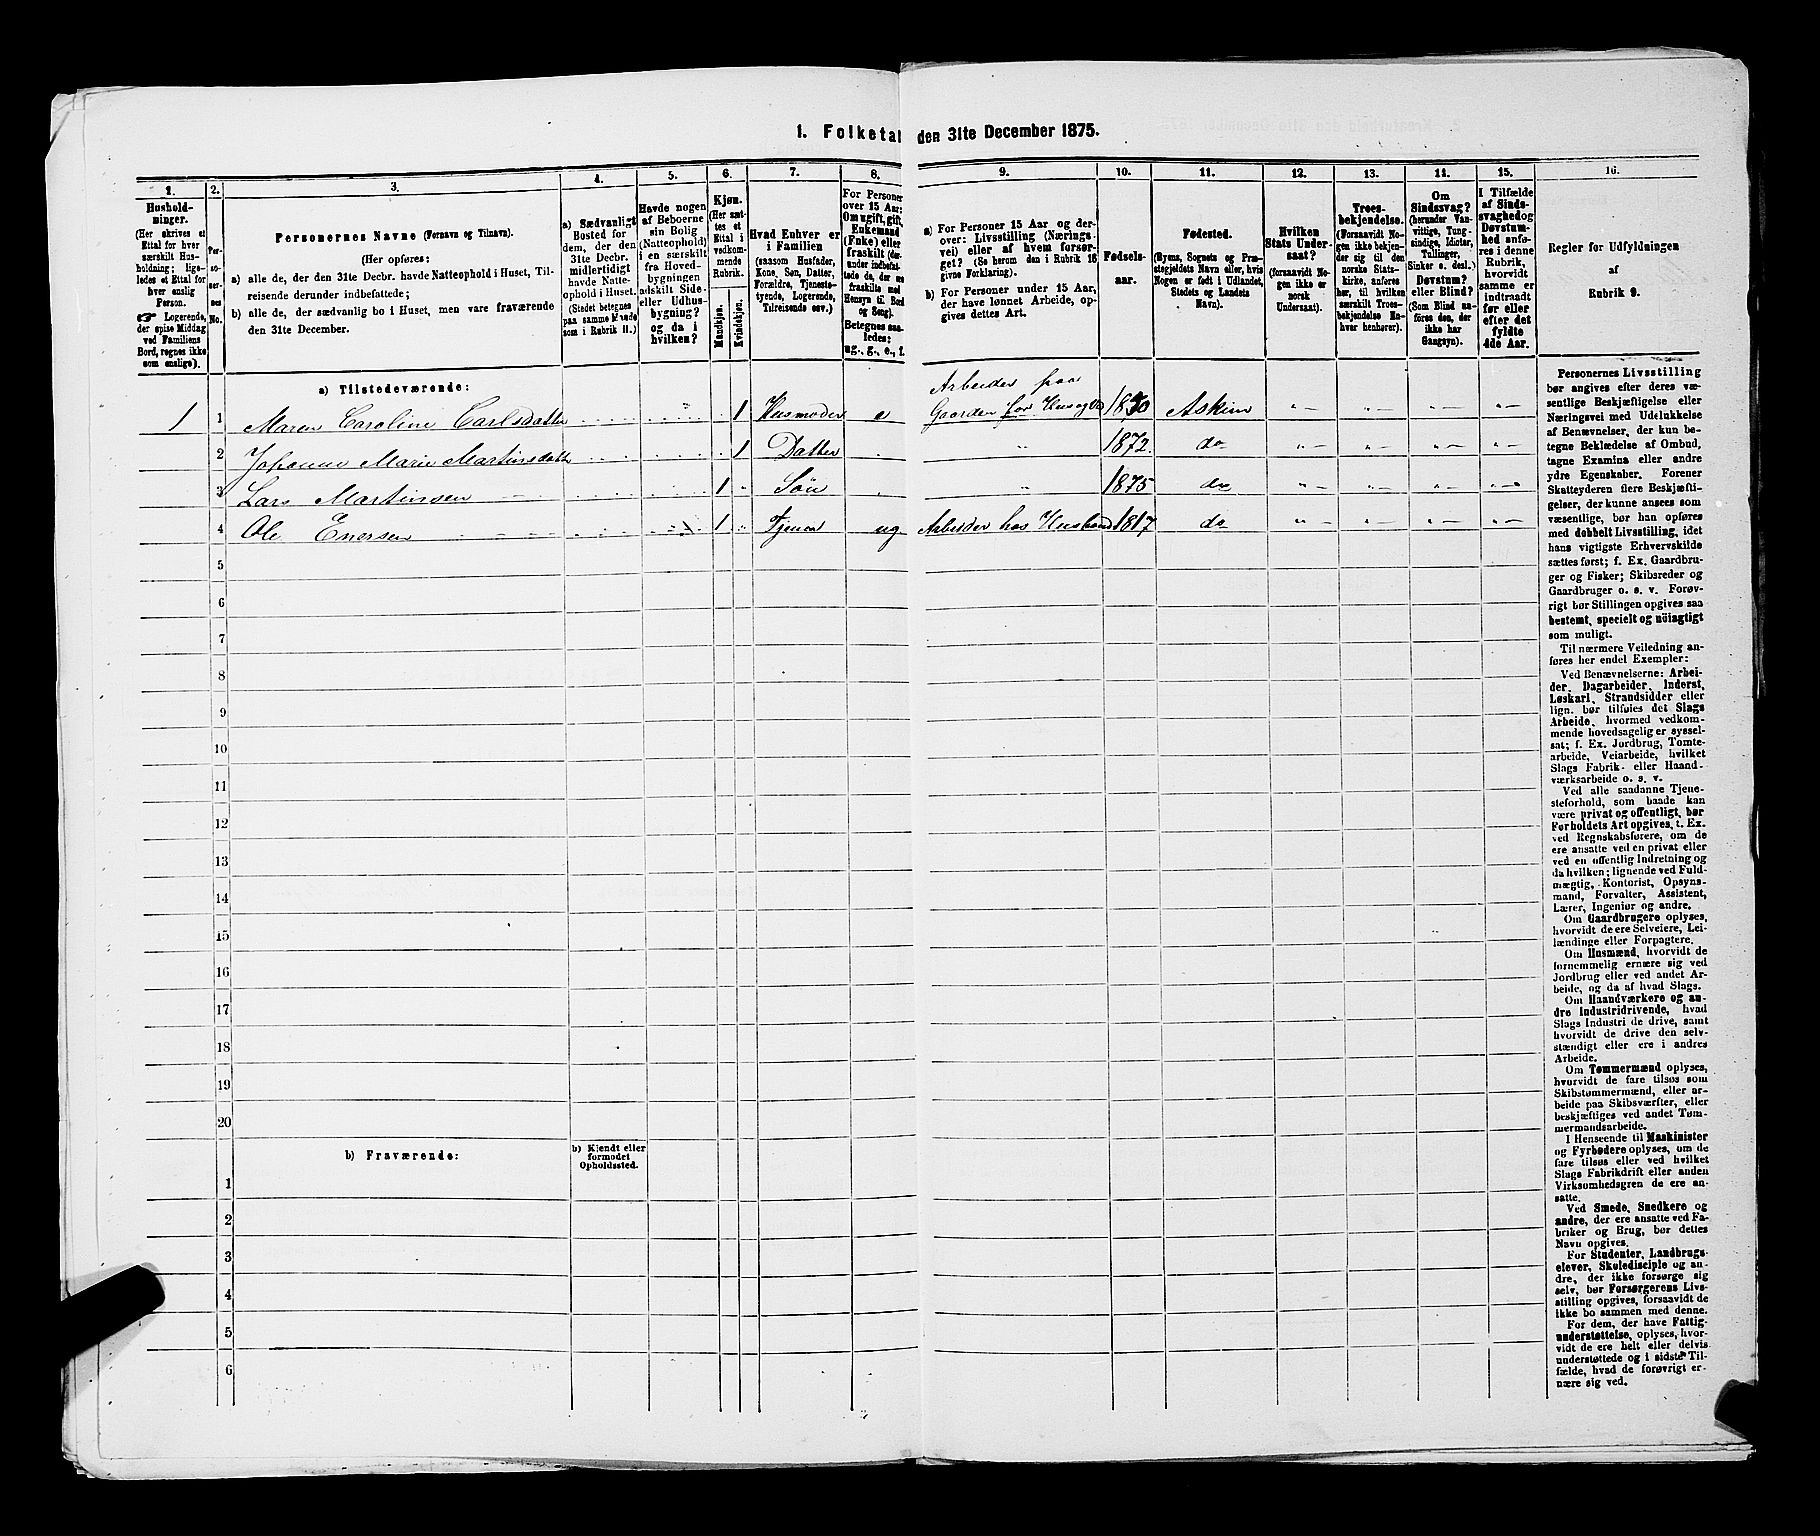 1. Folketal den 31te December 1875.
1.
Hushold-
ninger.
(Her skrives et
Ettal for hver
særskilt Hus-
holdning; lige-
ledes et Ettal for
hver enslig
Person.
☞ Logerende,
der spise Middag
ved Familiens
Bord, regnes ikke
som enslige).
2.
Per-
so-
ner-
nes
No.
3.
Personernes Navne (Fornavn og Tilnavn).
(Her opføres:
a) alle de, der den 31te Decbr. havde Natteophold i Huset, Til-
reisende derunder indbefattede;
b) alle de, der sædvanlig bo i Huset, men vare fraværende
den 31te December.
4.
a) Sædvanligt
Bosted for
dem, der den
31te Decbr.
midlertidigt
havde Natte-
ophold i Huset.
(Stedet betegnes
paa samme Maade
som i Rubrik 11.)
5.
Havde nogen
af Beboerne
sin Bolig
(Natteophold)
i en særskilt
fra Hoved-
bygningen
adskilt Side-
eller Udhus-
bygning?
og da i
hvilken?
6.
Kjøn.
(Her sæt-
tes et
Ettal i
vedkom-
mende
Rubrik.
Mandkjøn.
Kvindekjøn.
7.
Hvad Enhver er
i Familien
(saasom Husfader,
Kone, Søn, Datter,
Forældre, Tjeneste-
tyende, Logerende,
Tilreisende osv.)
8.
For Personer
over 15 Aar:
Om ugift, gift,
Enkemand
(Enke) eller
fraskilt (der-
under indbefat-
tede de, der ere
fraskilte med
Hensyn til Bord
og Seng).
Betegnes saa-
ledes:
ug., g., e., f.
9.
a) For Personer 15 Aar og der-
over: Livsstilling (Nærings-
vei) eller af hvem forsør-
get? (Se herom den i Rubrik 16
givne Forklaring).
b) For Personer under 15 Aar,
der have lønnet Arbeide, op-
gives dettes Art.
10.
Fødsels-
aar.
11.
Fødested.
(Byens, Sognets og Præ-
stegjeldets Navn eller, hvis
Nogen er født i Udlandet,
Stedets og Landets
Navn).
12.
Hvilken
Stats Under-
saat?
(forsaavidt No-
gen ikke er
norsk
Undersaat).
13.
Troes-
bekjendelse.
(Forsaavidt No-
gen ikke bekjen-
der sig til den
norske Stats-
kirke, anføres
her, til hvilken
særskilt Troes-
bekjendelse En-
hver henhører).
14.
Om
Sindssvag?
(herunder Van-
vittige, Tung-
sindige, Idioter,
Tullinger,
Sinker o. desl.)
Døvstum?
eller Blind?
(Som Blind an-
føres den, der
ikke har
Gangsyn).
15.
I Tilfælde
af Sinds-
svaghed og
Døvstum-
hed anfø-
res i denne
Rubrik,
hvorvidt
samme er
indtraadt
før eller
efter det
fyldte
4de Aar.
16.
Regler for Udfyldningen
af
Rubrik 9.
a) Tilstedeværende:
1 1 Maren Caroline Carlsdatter 1 Husmoder e Arbeider paa
Gaarden for Hus og 1830 Askim
2 Johanne Marie Martinsdatt 1 Datter 1872. do
3 Lars Martinsen 1 Søn 1875 do
4 Ole Enersen 1 Tjener ug Arbeider hos Husbond 1817 do
5
6
7
8
9
10
11
12
13
14
15
16
17
18
19
20
b) Fraværende:
b) Kjendt eller
formodet
Opholdssted.
1
2
3
4
5
6
Personernes Livsstilling
bør angives efter deres væ-
sentlige Beskjæftigelse eller
Næringsvei med Udelukkelse
af Benævnelser, der kun be-
tegne Beklædelse af Ombud,
tagne Examina eller andre
ydre Egenskaber. Forener
Skatteyderen flere Beskjæfti-
gelser, der kunne ansees som
væsentlige, bør han opføres
med dobbelt Livsstilling, idet
hans vigtigste Erhvervskilde
sættes først; f. Ex. Gaardbru-
ger og Fisker; Skibsreder og
Gaardbruger o. s. v. Forøv-
rigt bør Stillingen opgives saa
bestemt, specielt og nöiagtigt
som muligt.
Til nærmere Veiledning an-
føres her endel Exempler:
Ved Benævnelserne: Arbei-
der, Dagarbeider, Inderst,
Løskarl, Strandsidder eller
lign. bør tilføies det Slags
Arbeide, hvormed vedkom-
mende hovedsagelig er syssel-
sat; f. Ex. Jordbrug, Tomte-
arbeide, Veiarbeide, hvilket
Slags Fabrik- eller Haand-
værksarbeide o. s. v.
Ved alle saadanne Tjene-
steforhold, som baade kan
være privat og offentligt, bør
Forholdets Art opgives, t. Ex.
ved Regnskabsførere, om de
ere ansatte ved en privat eller
ved en offentlig Indretning og
da hvilken; lignende ved Fuld-
mægtig, Kontorist, Opsyns-
mand, Forvalter, Assistent,
Lærer, Ingeniør og andre.
Om Gaardbrugere oplyses,
hvorvidt de ere Selveiere, Lei-
lændinge eller Forpagtere.
Om Husmænd, hvorvidt de
fornemmelig ernære sig ved
Jordbrug eller ved andet Ar-
beide, og da af hvad Slags.
Om Haandværkere og an-
dre Industridrivende, hvad
Slags Industri de drive, samt
hvorvidt de drive den selv-
stændigt eller ere i andres
Arbeide.
Om Tømmermænd oplyses,
hvorvidt de fare tilsøs som
Skibstømmermænd, eller ar-
beide paa Skibsværfter, eller
beskjæftiges ved andet Tøm-
mermandsarbeide.
I Henseende til Maskinister
og Fyrbødere oplyses, om de
fare tilsøs eller ved hvilket
Slags Fabrikdrift eller anden
Virksomhedsgren de ere an-
satte.
Ved Smede, Snedkere og
andre, der ere ansatte ved Fa-
briker og Brug, bør dettes
Navn opgives.
For Studenter, Landbrugs-
elever, Skoledisciple og an-
dre, der ikke forsørge sig
selv, bør Forsørgerens Livs-
stilling opgives, forsaavidt de
ikke bo sammen med denne.
For dem, der have Fattig-
understøttelse, oplyses, hvor-
vidt de ere helt eller delvis
understøttede og i sidste Til-
fælde, hvad de forøvrigt er-
nære sig ved.